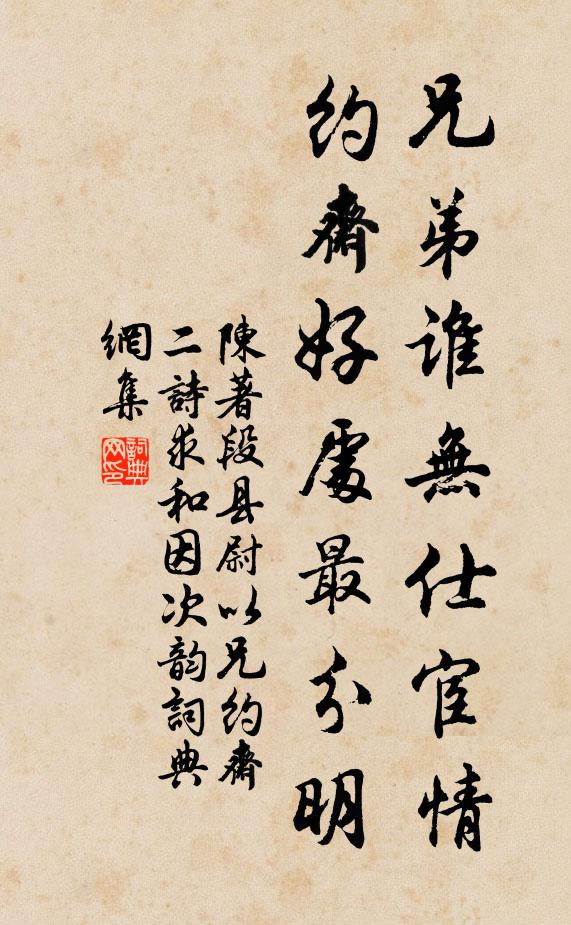 兄弟谁無仕宦情
約齋好處最分明
陳著段县尉以兄約齋
二詩求和因次韵詞典
網集
詞典網印